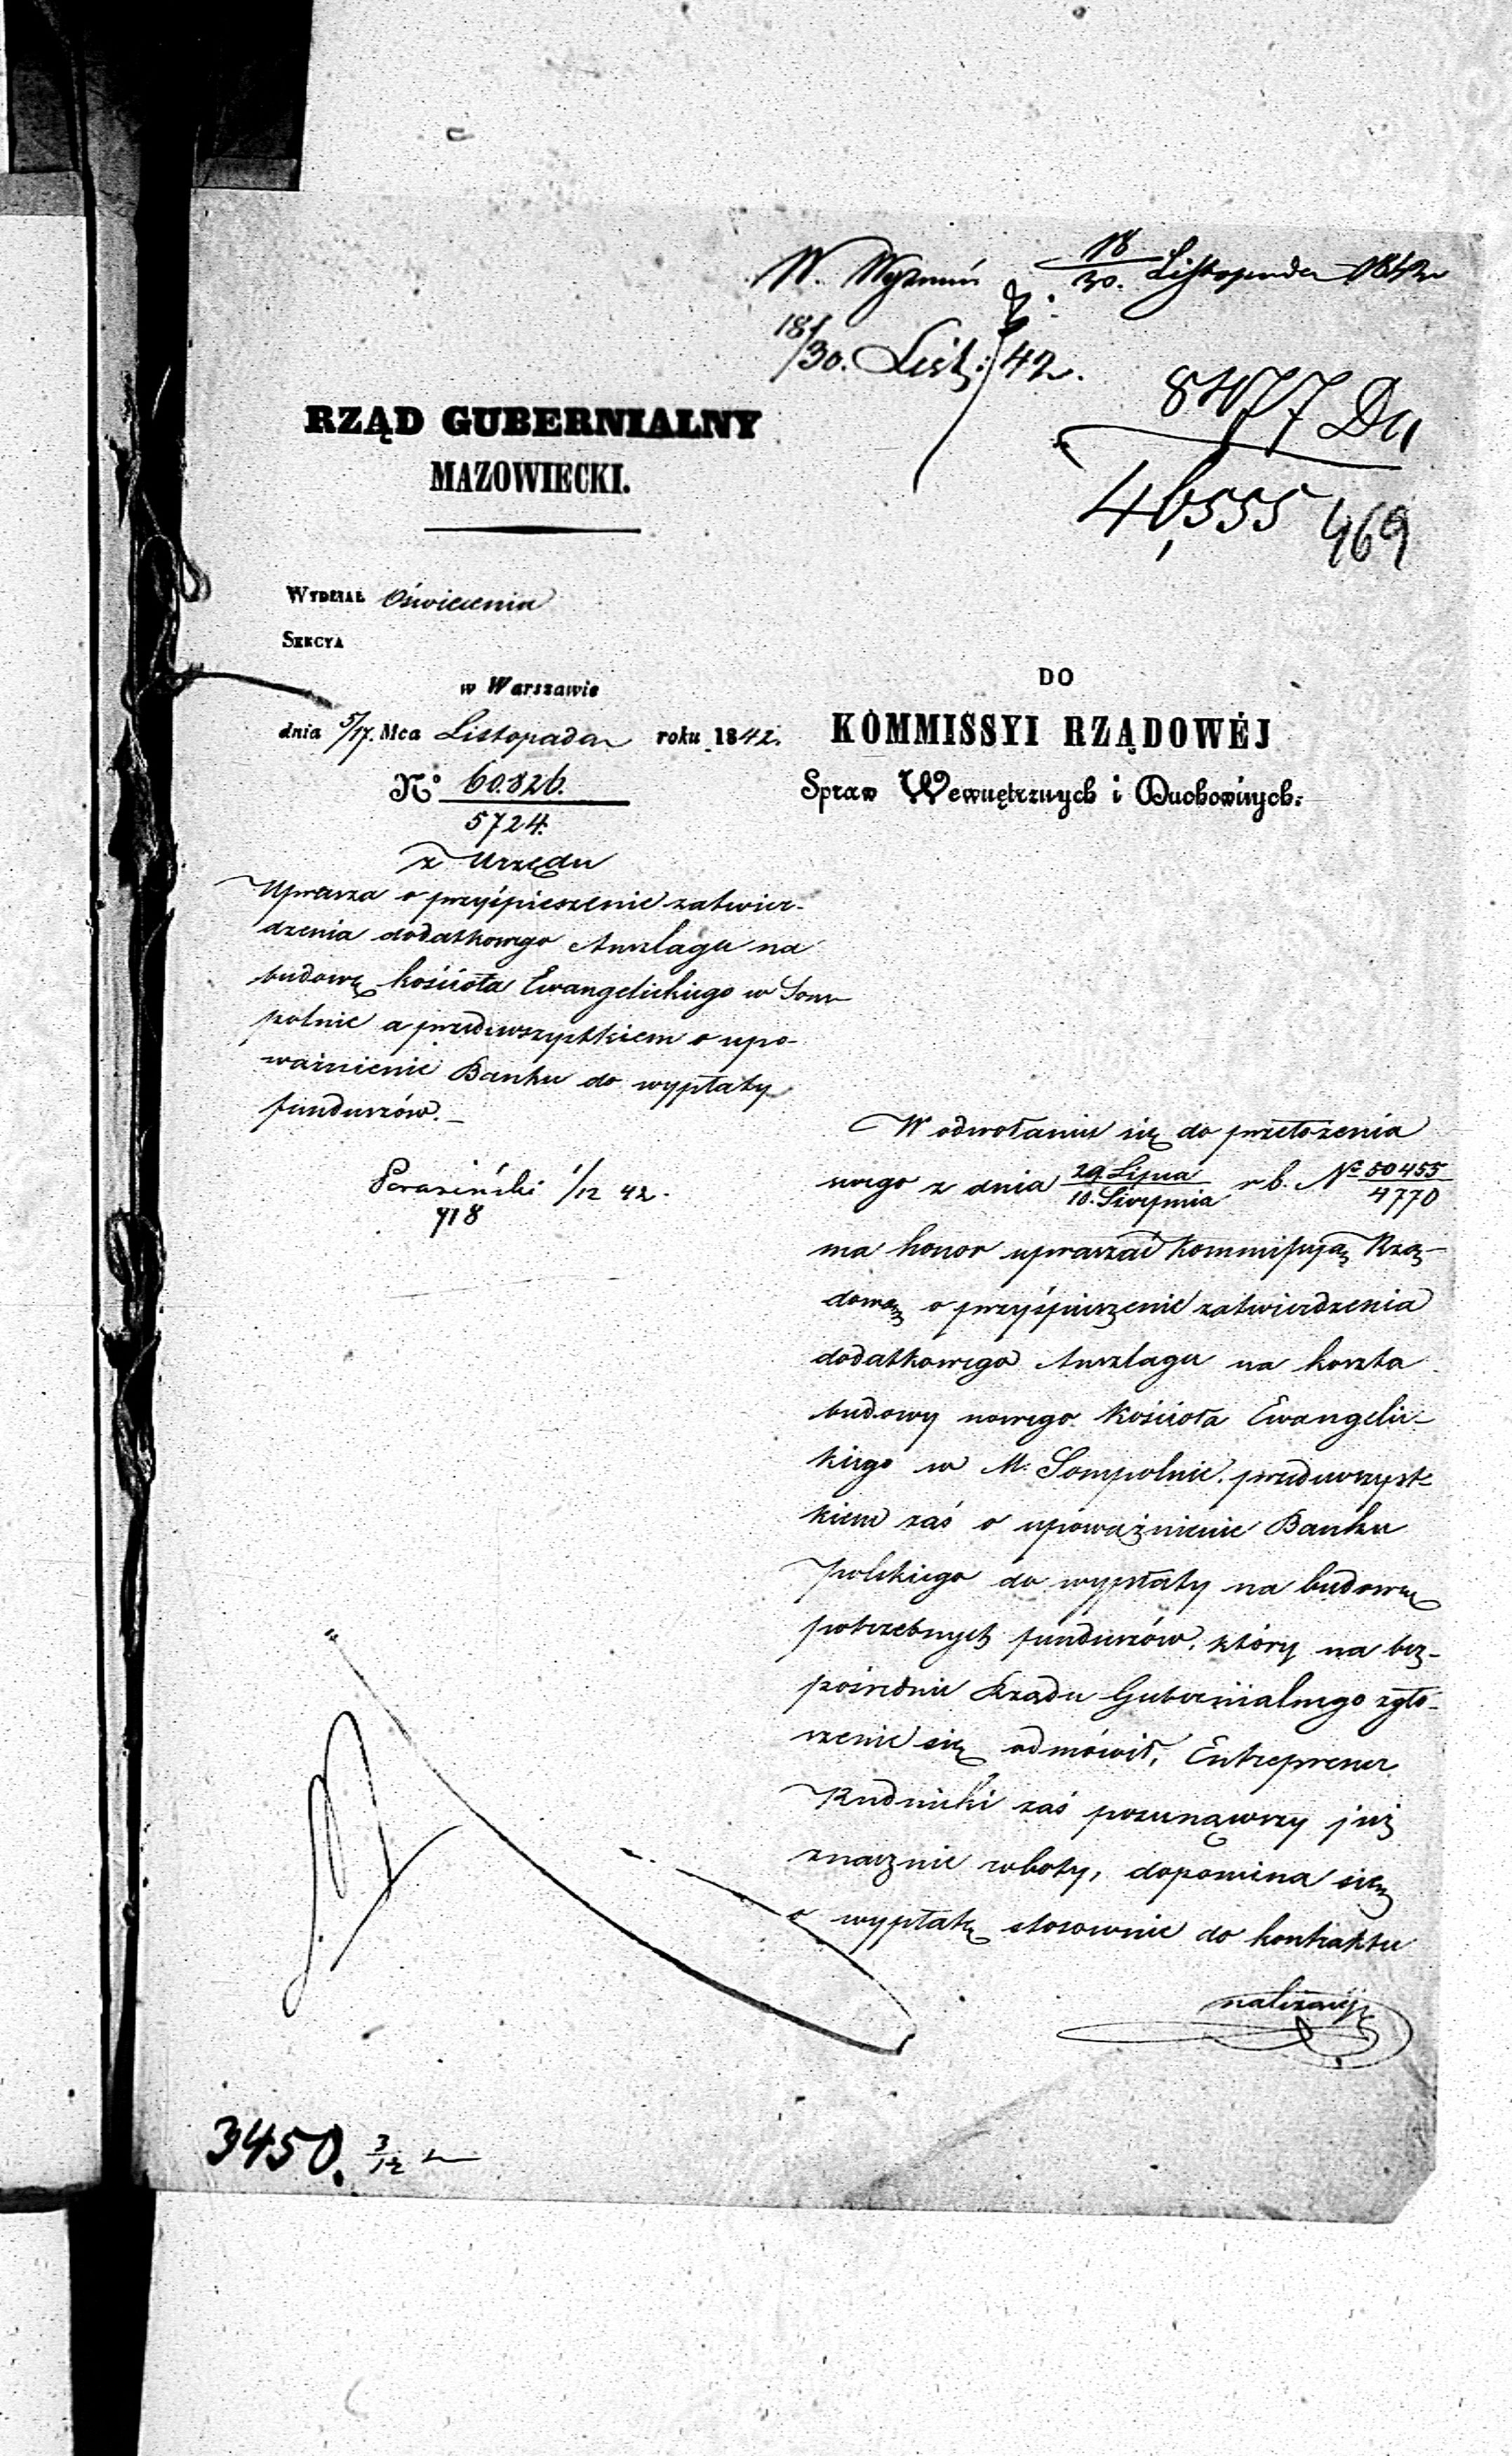 W. Wyznań 18/30. Listopada 1842
18/30. List: 42.
8477 Da
46555 469
RZĄD GUBERNIALNY
MAZOWIECKI.
WYDZIAŁ Oświecenia
SEKCYA
w Warszawie
dnia 5/17. Mca Listopada roku 1842.
No 60.826.
5724.
z Urzędu
Uprasza o przyśpieszenie zatwier-
dzenia dodatkowego Anszlagu na
budowę kościoła Ewangelickiego w Som-
polnie a przedewszystkiem o upo-
ważnienie Banku do wypłaty
funduszów.
1/12 42.
718
DO
KOMMISSYI RZĄDOWÉJ
Spraw Wewnętrznych i Duchownych.
W odwołaniu się do przełożenia
swego z dnia 29. Lipca/10. Sierpnia r. b. No 50455/4770
ma honor upraszać Kommissyą Rzą-
dową o przyśpieszenie zatwierdzenia
dodatkowego Anszlagu na koszta
budowy nowego Kościoła Ewangelic-
kiego w M: Sompolnie, przedewszyst-
kiem zaś o upoważnienie Banku
Polskiego do wypłaty na budowę
potrzebnych funduszów, który na bez-
pośrednie Rządu Gubernialnego zgło-
szenie się odmówił, Entreprener
Rudnicki zaś posunąwszy już
znacznie roboty, dopomina się
o wypłatę stosownie do kontraktu
należącéj
3450. 3/12